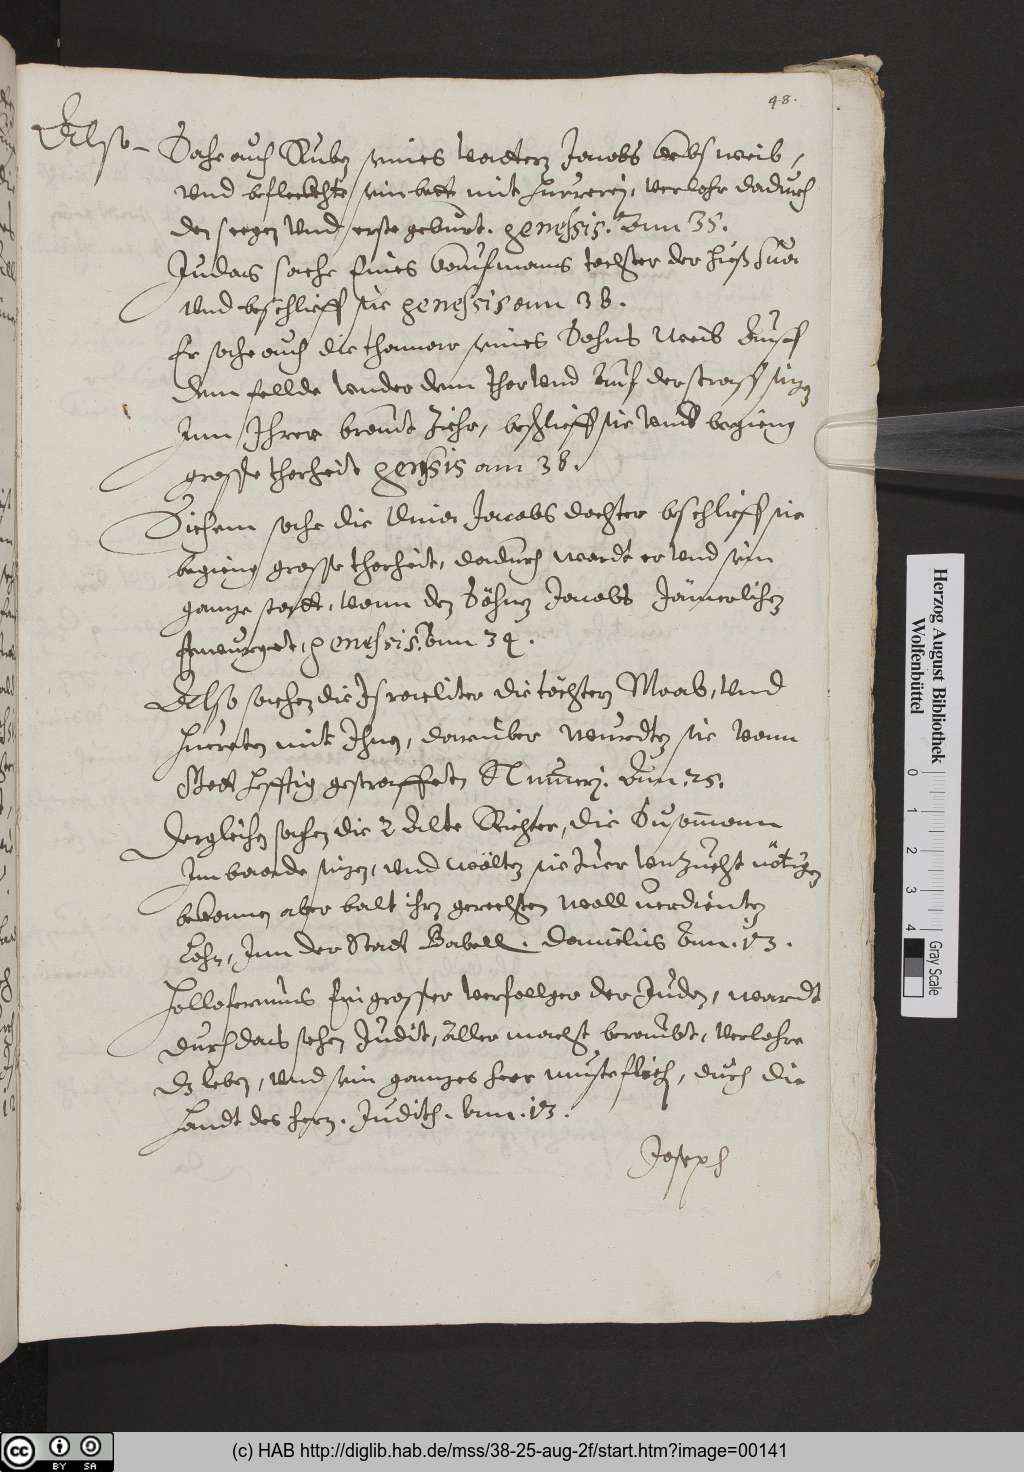 48.
Also
Sahe auch Ruben seines Vatters Jacobs kebsweib,
vnd befleckhte sein bett mit huererej, verlohr dadurch
den seegen vnd erste geburt. genessis. Am 35.
Judas sache Eines kauffmans tochter der hieß Sua
vnd beschlieff sie genessis am 38.
Er sahe auch die thamar seines Sohns weib auff
dem fellde vnder dem thor vnd auf der strass sizen
Inn Ihrer braut Ziehr, beschlieff sie vnd begieng
grosse thorheit genesis am 38.
Sichem sahe die Dina Jacobs dochter beschlieff sie
begieng grosse thorheit, dadurch wardt er vnd sein
ganze statt, vonn den Söhnen Jacobs Jämerlichen
Erwürget, genessis. am 34.
Also sachen die Israeliter die töchtern Moab, vnd
huerten mit Ihnen, darüber wurdten sie vonn
Gott hefftig gestraffett Numerj. Am. 25.
Dergleichen sachen die 2 Alte Richter, die Susannam
Im baade sizen, vnd wolten sie Zuer vnzucht nötigen
bekamen aber balt ihrn gerechten woll verdienten
Lohn, Inn der Statt Babell. Danielis am. 13.
Hollofernus Ein grosser verfollger der Juden, wardt
durch das sehen Judit, aller macht beraubt, verlohre
dz leben, vnd sein ganzes heer muste fliehen, durch die
Handt des hern. Judith. am. 13.
Joseph
Herzog August Bibliothek
Wolfenbüttel
0 1 2 3 4
Gray Scale
cc BY SA
(c) HAB http://diglib.hab.de/mss/38-25-aug-2f/start.htm?image=00141